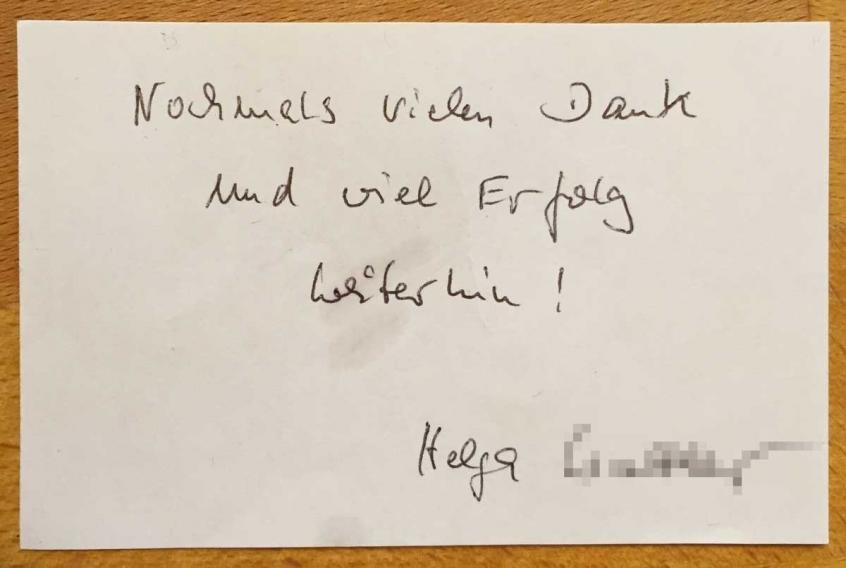 Nochmals vielen Dank
und viel Erfolg
weiterhin!
Helga